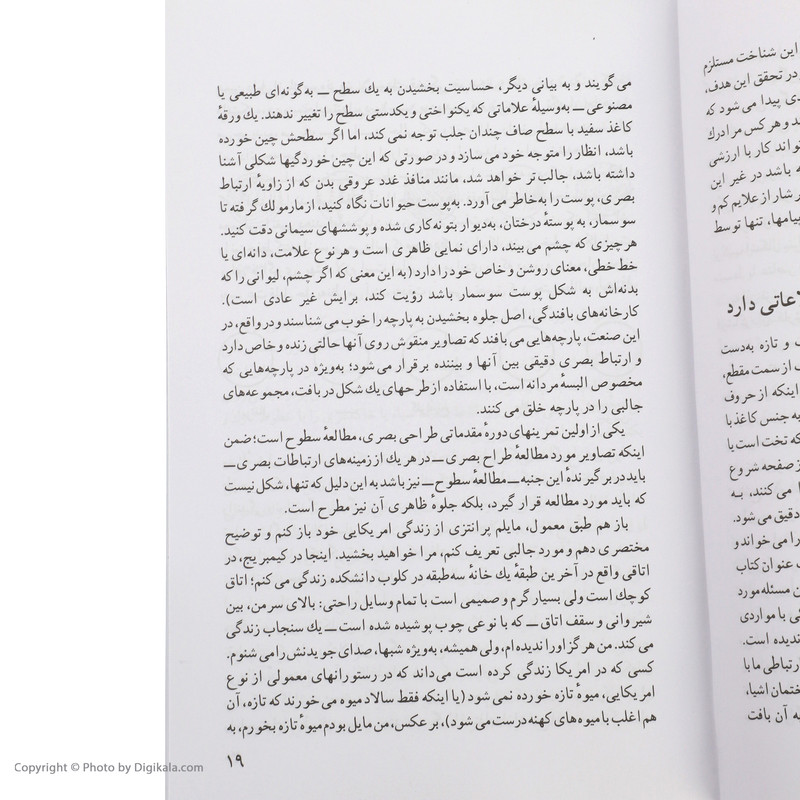 می‌گویند و به بیانی دیگر، حساسیت بخشیدن به یك سطح ــ به‌گونه‌ای طبیعی یا
مصنوعی ــ به‌وسیلهٔ علاماتی که یکنواختی و یکدستی سطح را تغییر ندهند. یك ورقهٔ
کاغذ سفید با سطح صاف چندان جلب توجه نمی‌کند، اما اگر سطحش چین خورده
باشد، انظار را متوجه خود می‌سازد و در صورتی که این چین خوردگیها شکلی آشنا
داشته باشد، جالب‌تر خواهد شد، مانند منافذ غدد عروقی بدن که از زاویهٔ ارتباط
بصری، پوست را به‌خاطر می‌آورد. به‌پوست حیوانات نگاه کنید، از مارمولك گرفته تا
سوسمار، به پوستهٔ درختان، به‌دیوار بتونه‌کاری شده و پوششهای سیمانی دقت کنید.
هر چیزی که چشم می‌بیند، دارای نمایی ظاهری است و هر نوع علامت، دانه‌ای یا
خط خطی، معنای روشن و خاص خود را دارد (به این معنی که اگر چشم، لیوانی را که
بدنه‌اش به شکل پوست سوسمار باشد رؤیت کند، برایش غیر عادی است).
کارخانه‌های بافندگی، اصل جلوه بخشیدن به پارچه را خوب می‌شناسند و در واقع، در
این صنعت، پارچه‌هایی می‌بافند که تصاویر منقوش روی آنها حالتی زنده و خاص دارد
و ارتباط بصری دقیقی بین آنها و بیننده برقرار می‌شود؛ به‌ویژه در پارچه‌هایی که
مخصوص البسهٔ مردانه است، با استفاده از طرحهای یك شکل در بافت، مجموعه‌های
جالبی را در پارچه خلق می‌کنند.
یکی از اولین تمرینهای دورهٔ مقدماتی طراحی بصری، مطالعهٔ سطوح است؛ ضمن
اینکه تصاویر مورد مطالعهٔ طراح بصری ــ در هر یك از زمینه‌های ارتباطات بصری ــ
باید دربرگیرندهٔ این جنبه ــ مطالعهٔ سطوح ــ نیز باشد به این دلیل که تنها، شکل نیست
که باید مورد مطالعه قرار گیرد، بلکه جلوهٔ ظاهری آن نیز مطرح است.
باز هم طبق معمول، مایلم پرانتزی از زندگی امریکایی خود باز کنم و توضیح
مختصری دهم و مورد جالبی تعریف کنم، مرا خواهید بخشید. اینجا در کیمبریج، در
اتاقی واقع در آخرین طبقهٔ یك خانهٔ سه‌طبقه در کلوب دانشکده زندگی می‌کنم؛ اتاق
کوچك است ولی بسیار گرم و صمیمی است با تمام وسایل راحتی: بالای سر من، بین
شیروانی و سقف اتاق ــ که با نوعی چوب پوشیده شده است ــ یك سنجاب زندگی
می‌کند. من هرگز او را ندیده‌ام، ولی همیشه، به‌ویژه شبها، صدای جویدنش را می‌شنوم.
کسی که در امریکا زندگی کرده است می‌داند که در رستورانهای معمولی از نوع
امریکایی، میوهٔ تازه خورده نمی‌شود (یا اینکه فقط سالاد میوه می‌خورند که تازه، آن
هم اغلب با میوه‌های کهنه درست می‌شود)، برعکس، من مایل بودم میوهٔ تازه بخورم، به
۱۹
این شناخت مستلزم
در تحقق این هدف،
دی پیدا می‌شود که
ند و هرکس مرادرك
تواند کار با ارزشی
باشد در غیر این
شار از علایم کم و
پیامها، تنها توسط
لاعاتی دارد
و تازه به‌دست
از سمت مقطع،
اینکه از حروف
به جنس کاغذ با
که تخت است یا
ز صفحه شروع
می‌کنند، به
دقیق می‌شود.
را می‌خواند و
عنوان کتاب
ن مسئله مورد
با مواردی
ندیده است.
ارتباطی ما با
ختمان اشیا،
ه آن بافت
Copyright © Photo by Digikala.com